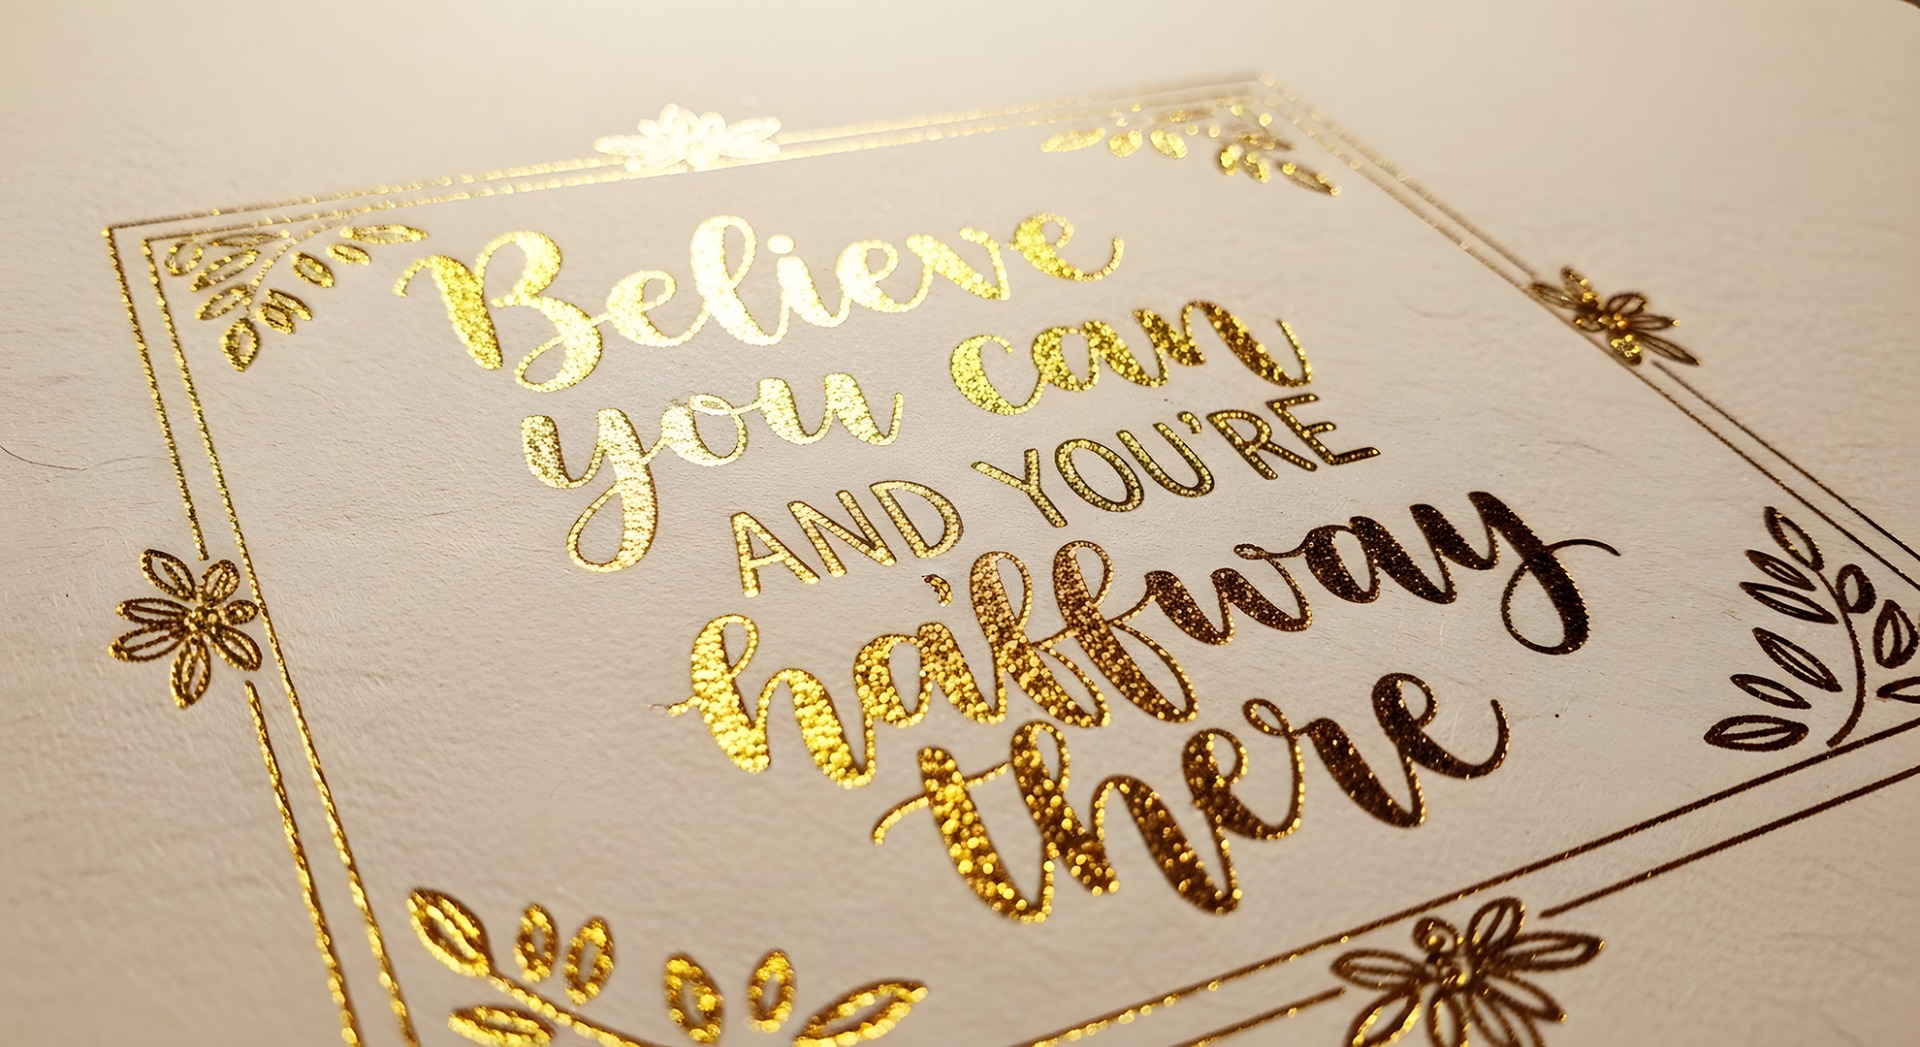 Believe
you can
AND YOU'RE
haffway
there